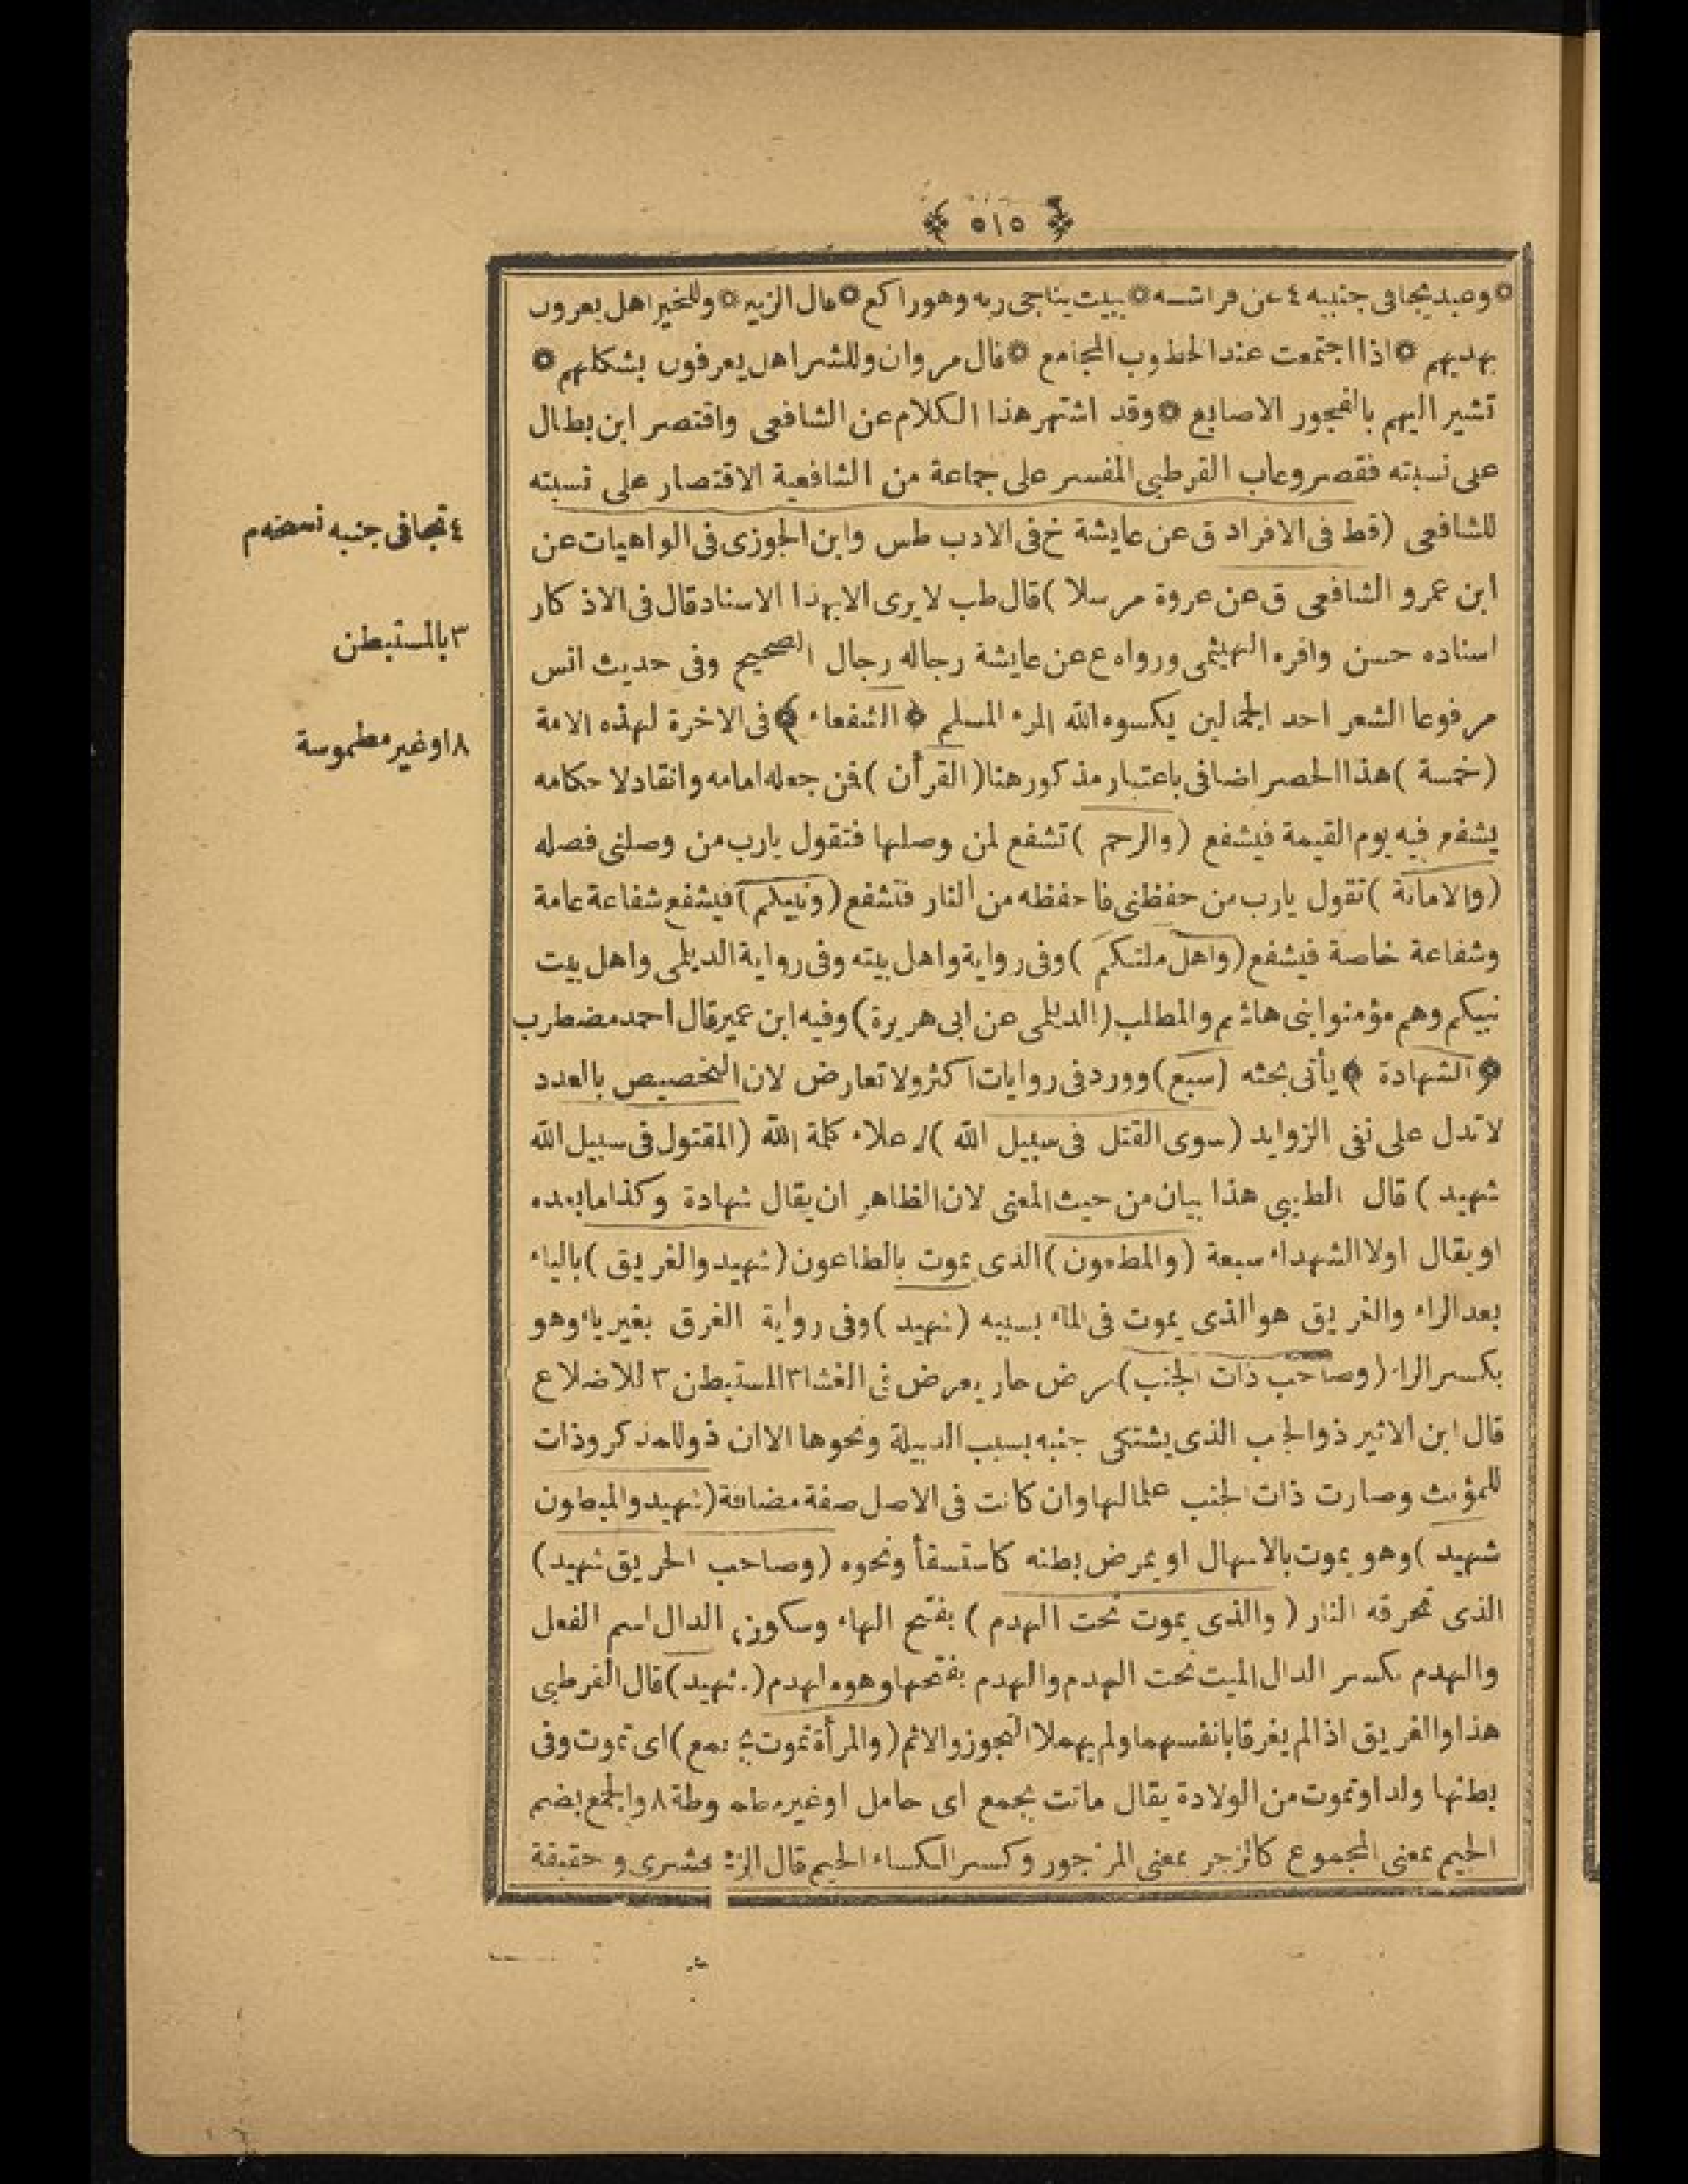 ﴿ ٥١٥ ﴾
۞ وعبد يجافى جنبيه ٤ عن فراشه ۞ يبيت يناجى ربه وهو راكع ۞ قال الزبير ۞ وللخير اهل يعرفون
بهديهم ۞ اذا اجتمعت عند الخطوب المجامع ۞ قال مروان وللشر اهل يعرفون بشكلهم ۞
تشير اليهم بالفجور الاصابع ۞ وقد اشتهر هذا الكلام عن الشافعى واقتصر ابن بطال
على نسبته فقصر وعاب القرطبى المفسر على جماعة من الشافعية الاقتصار على نسبته
للشافعى (قط فى الافراد ق عن عايشة خ فى الادب طس وابن الجوزى فى الواهيات عن
ابن عمرو الشافعى ق عن عروة مرسلا) قال طب لا يرى الا بهذا الاسناد قال فى الاذكار
اسناده حسن واقره الهيثمى ورواه ع عن عايشة رجاله رجال الصحيح وفى حديث انس
مرفوعا الشعر احد الجمالين يكسوه الله المرء المسلم ﴿ الشفعاء ﴾ فى الاخرة لهذه الامة
(خمسة) هذا الحصر اضافى باعتبار مذكور هنا (القرأن) فمن جعله امامه وانقاد لاحكامه
يشفع فيه يوم القيمة فيشفع (والرحم) تشفع لمن وصلها فتقول يارب من وصلنى فصله
(والامانة) تقول يارب من حفظنى فاحفظه من النار فتشفع (ونبيكم) فيشفع شفاعة عامة
وشفاعة خاصة فيشفع (واهل ملتكم) وفى رواية واهل بيته وفى رواية الديلمى واهل بيت
نبيكم وهم مؤمنوا بنى هاشم والمطلب (الديلمى عن ابى هريرة) وفيه ابن عمير قال احمد مضطرب
﴿ الشهادة ﴾ يأتى بحثه (سبع) وورد فى روايات اكثر ولا تعارض لان التخصيص بالعدد
لا تدل على نفى الزوايد (سوى القتل فى سبيل الله) لاعلاء كلمة الله (المقتول فى سبيل الله
شهيد) قال الطيبى هذا بيان من حيث المعنى لان الظاهر ان يقال شهادة وكذا ما بعده
او يقال اولا الشهداء سبعة (والمطعون) الذى يموت بالطاعون (شهيد والغريق) بالياء
بعد الراء والغريق هو الذى يموت فى الماء بسببه (شهيد) وفى رواية الغرق بغير ياء وهو
بكسر الراء (وصاحب ذات الجنب) مرض حار يعرض فى الغشا ٣ المستبطن ٣ للاضلاع
قال ابن الاثير ذو الجنب الذى يشتكى جنبه بسبب الدبيلة ونحوها الا ان ذو للمذكر وذات
للمؤنث وصارت ذات الجنب علما لها وان كانت فى الاصل صفة مضافة (شهيد والمبطون
شهيد) وهو يموت بالاسهال او بمرض بطنه كاستسقأ ونحوه (وصاحب الحريق شهيد)
الذى تحرقه النار (والذى يموت تحت الهدم) بفتح الهاء وسكون الدال اسم الفعل
والهدم بكسر الدال الميت تحت الهدم والهدم بفتحها وهو ما يهدم (شهيد) قال القرطبى
هذا والغريق اذا لم يغرقا بانفسهما ولم يهملا التجوز والاثم (والمرأة تموت بجمع) اى تموت وفى
بطنها ولد او تموت من الولادة يقال ماتت بجمع اى حامل او غير مطموطة ٨ والجمع بضم
الجيم بمعنى المجموع كالزجر بمعنى المزجور وكسر الكساء الجيم قال الزمخشرى و حقيقة
٤ تجافى جنبه نسخه م
٣ بالمستبطن
٨ او غير مطموسة